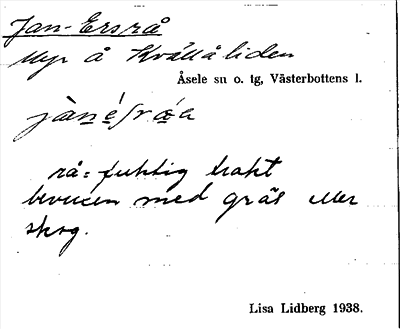 Jan-Ersrå
Myr å Kvällåliden
Åsele sn o. tg, Västerbottens l.
rå = fuktig trakt
bevuxen med gräs eller
skog.
Lisa Lidberg 1938.